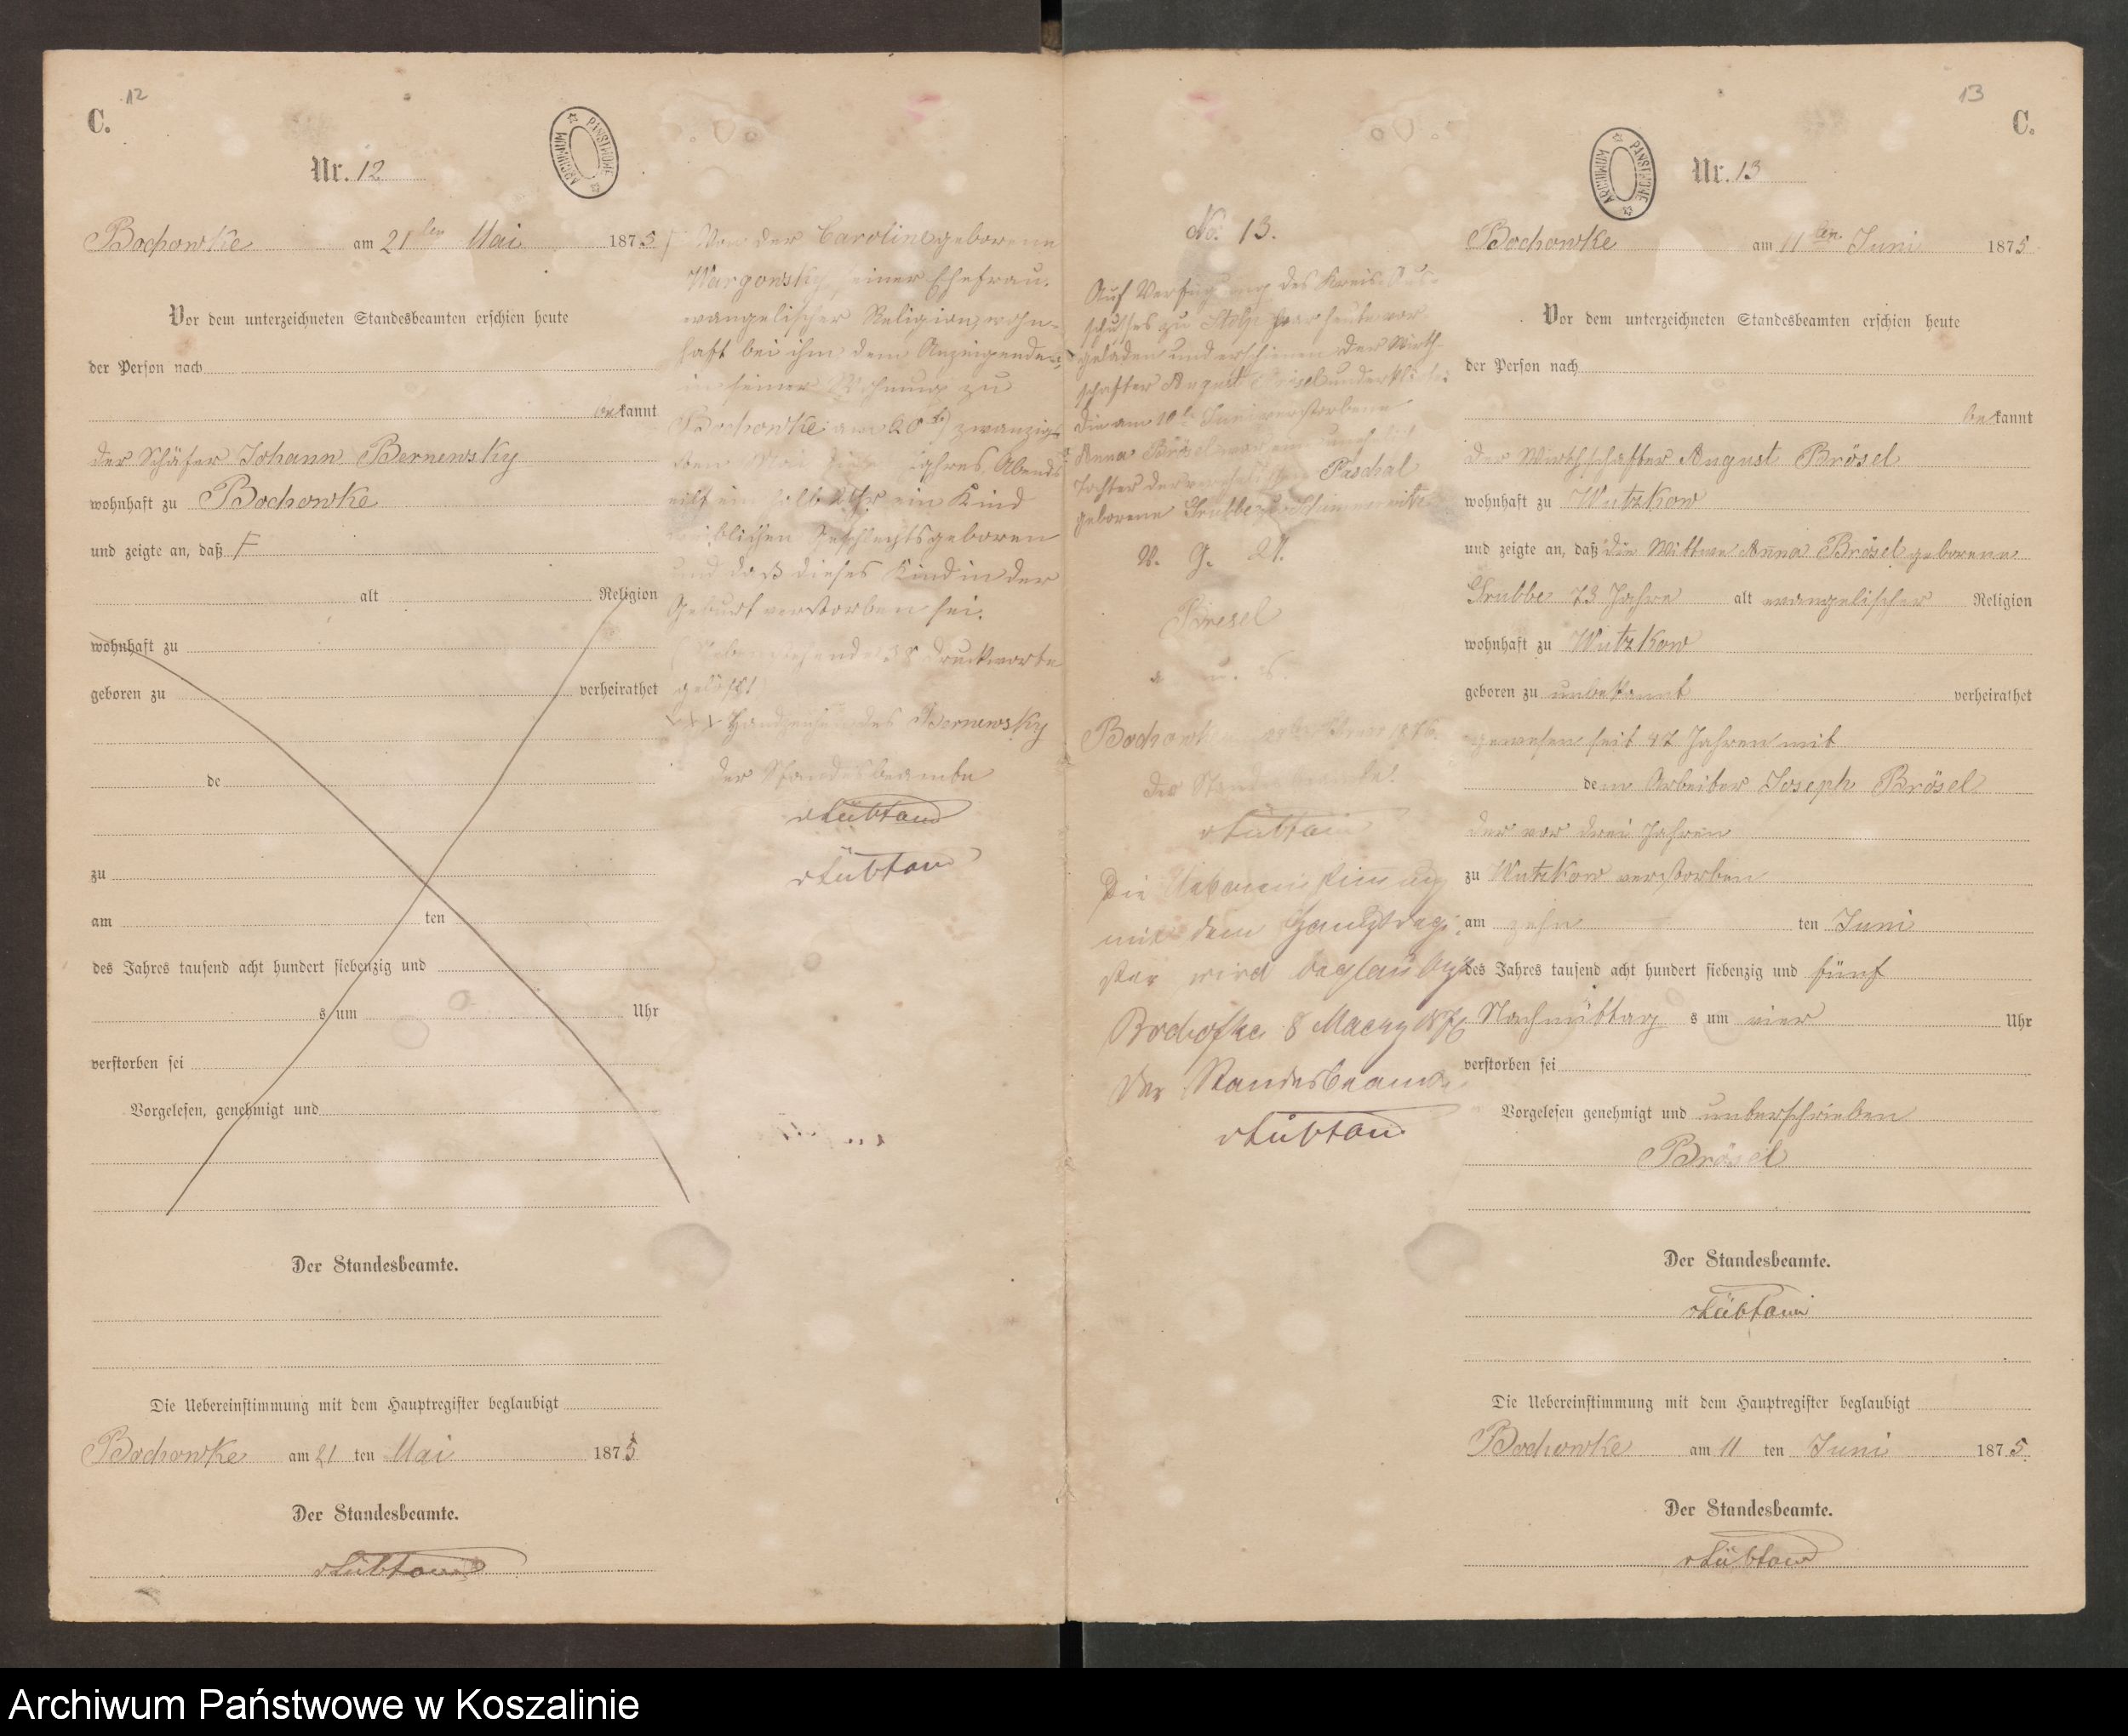 12
C.
Nr. 12
ARCHIWUM PAŃSTWOWE
Bochowke am 21ten Mai 1875
Vor dem unterzeichneten Standesbeamten erschien heute
der Person nach
bekannt
der Schäfer Johann Bernewsky
wohnhaft zu Bochowke
und zeigte an, daß
alt Religion
wohnhaft zu
geboren zu verheirathet
de
zu
am ten
des Jahres tausend acht hundert siebenzig und
s um Uhr
verstorben sei
Vorgelesen, genehmigt und
Der Standesbeamte.
Die Uebereinstimmung mit dem Hauptregister beglaubigt
Bochowke am 21 ten Mai 1875
Der Standesbeamte.
Von der Caroline geborene
Wargonsky, seiner Ehefrau,
evangelischer Religion, wohn-
haft bei ihm dem Anzeigenden,
in seiner Wohnung zu
Bochowke am 20t zwanzig-
sten Mai Jahres Abends
ein Kind
weiblichen Geschlechts geboren
und daß dieses Kind in der
Geburt verstorben sei.
38 Druckworte
gelöscht
+++ Handzeichen des Bernewsky
Der Standesbeamte
No. 13.
Auf Verfügung des Kreis-Aus-
schusses zu Stolp war heute vor-
geladen und erschienen der Wirth-
schafter August Brösel und erklärte:
die am 10t Juni verstorbene
Anna Brösel war
Tochter der Paschal
geborene Grubbe
V. G. U.
Brösel
Bochowke
Der Standesbeamte.
Die Uebereinstimmung
mit dem Hauptregi-
ster wird beglaubigt
8
Der Standesbeamte
13
C.
Nr. 13
ARCHIWUM PAŃSTWOWE
Bochowke am 11ten Juni 1875
Vor dem unterzeichneten Standesbeamten erschien heute
der Person nach
bekannt
der Wirthschafter August Brösel
wohnhaft zu Wutzkow
und zeigte an, daß die Wittwe Anna Brösel geborene
Grubbe 73 Jahre alt evangelischer Religion
wohnhaft zu Wutzkow
geboren zu unbekannt verheirathet
gewesen seit 47 Jahren mit
dem Arbeiter Joseph Brösel
der vor drei Jahren
zu Wutzkow verstorben
am zehn ten Juni
des Jahres tausend acht hundert siebenzig und fünf
Nachmittag s um vier Uhr
verstorben sei
Vorgelesen genehmigt und unterschrieben
Brösel
Der Standesbeamte.
Die Uebereinstimmung mit dem Hauptregister beglaubigt
Bochowke am 11 ten Juni 1875
Der Standesbeamte.
Archiwum Państwowe w Koszalinie